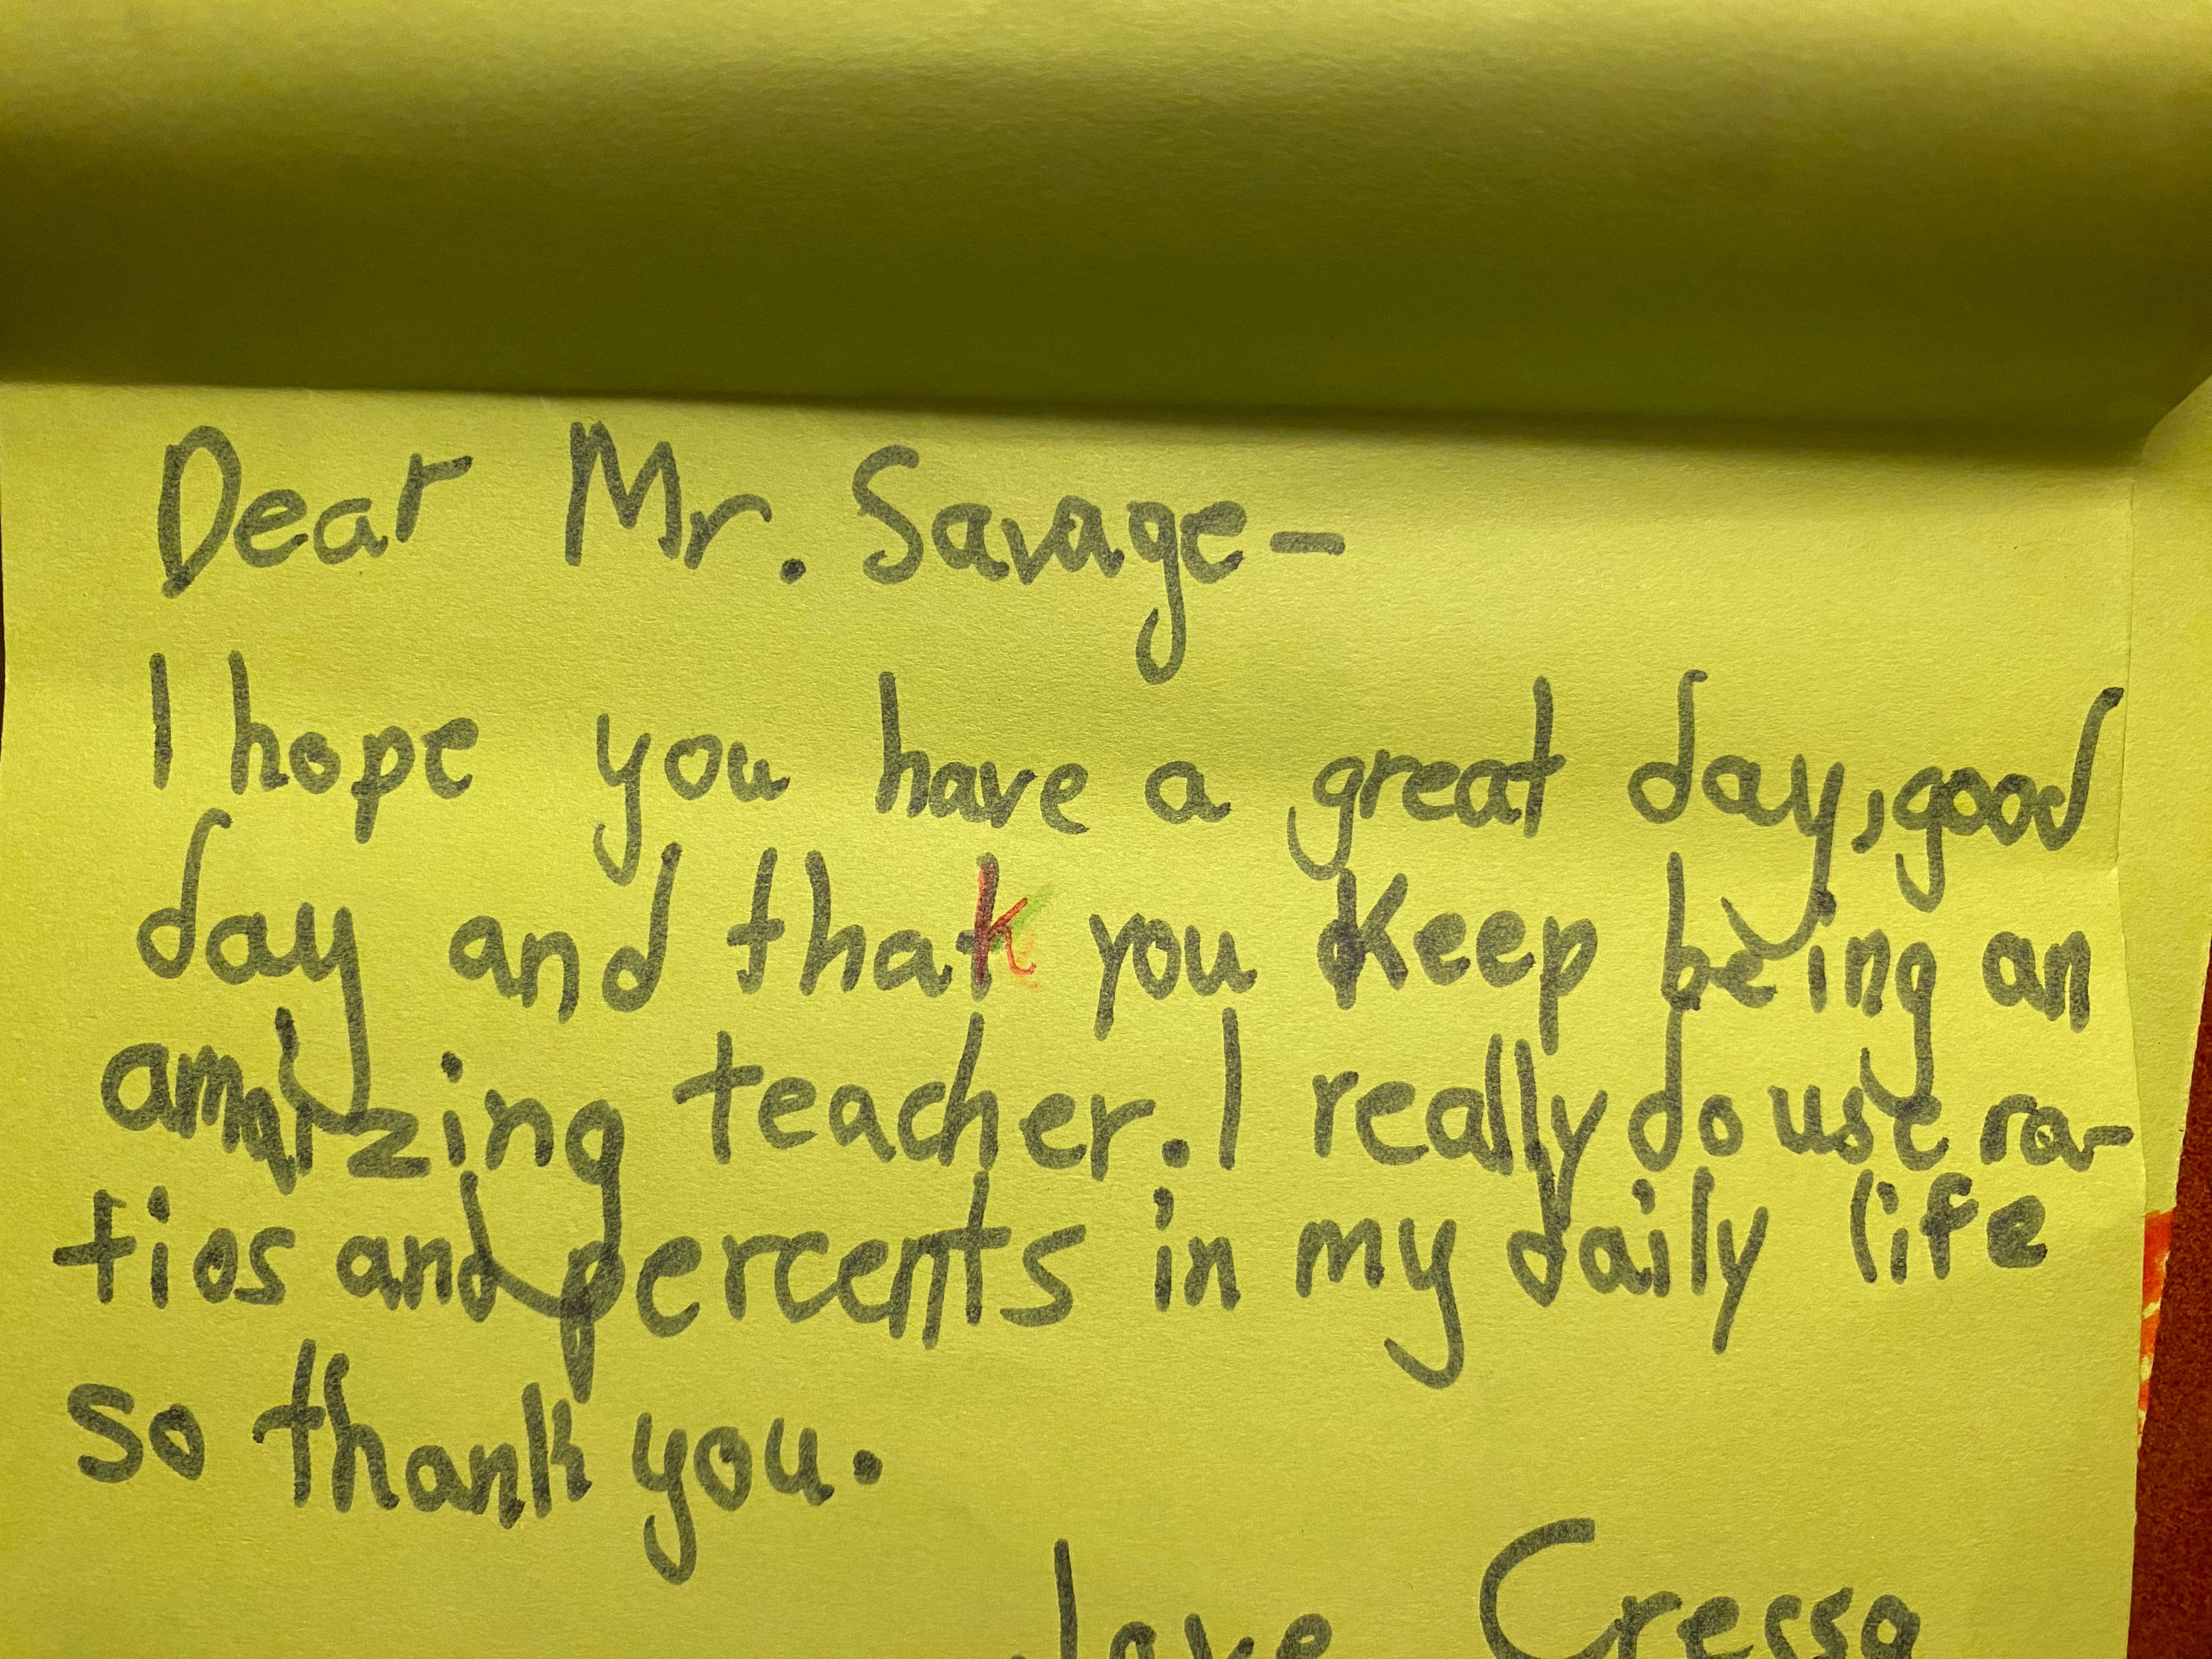 Dear Mr. Savage-
I hope you have a great day, good
day and thak you Keep being an
amaizing teacher. I really do use ra-
tios and percents in my daily life
so thank you.
Love Cressa